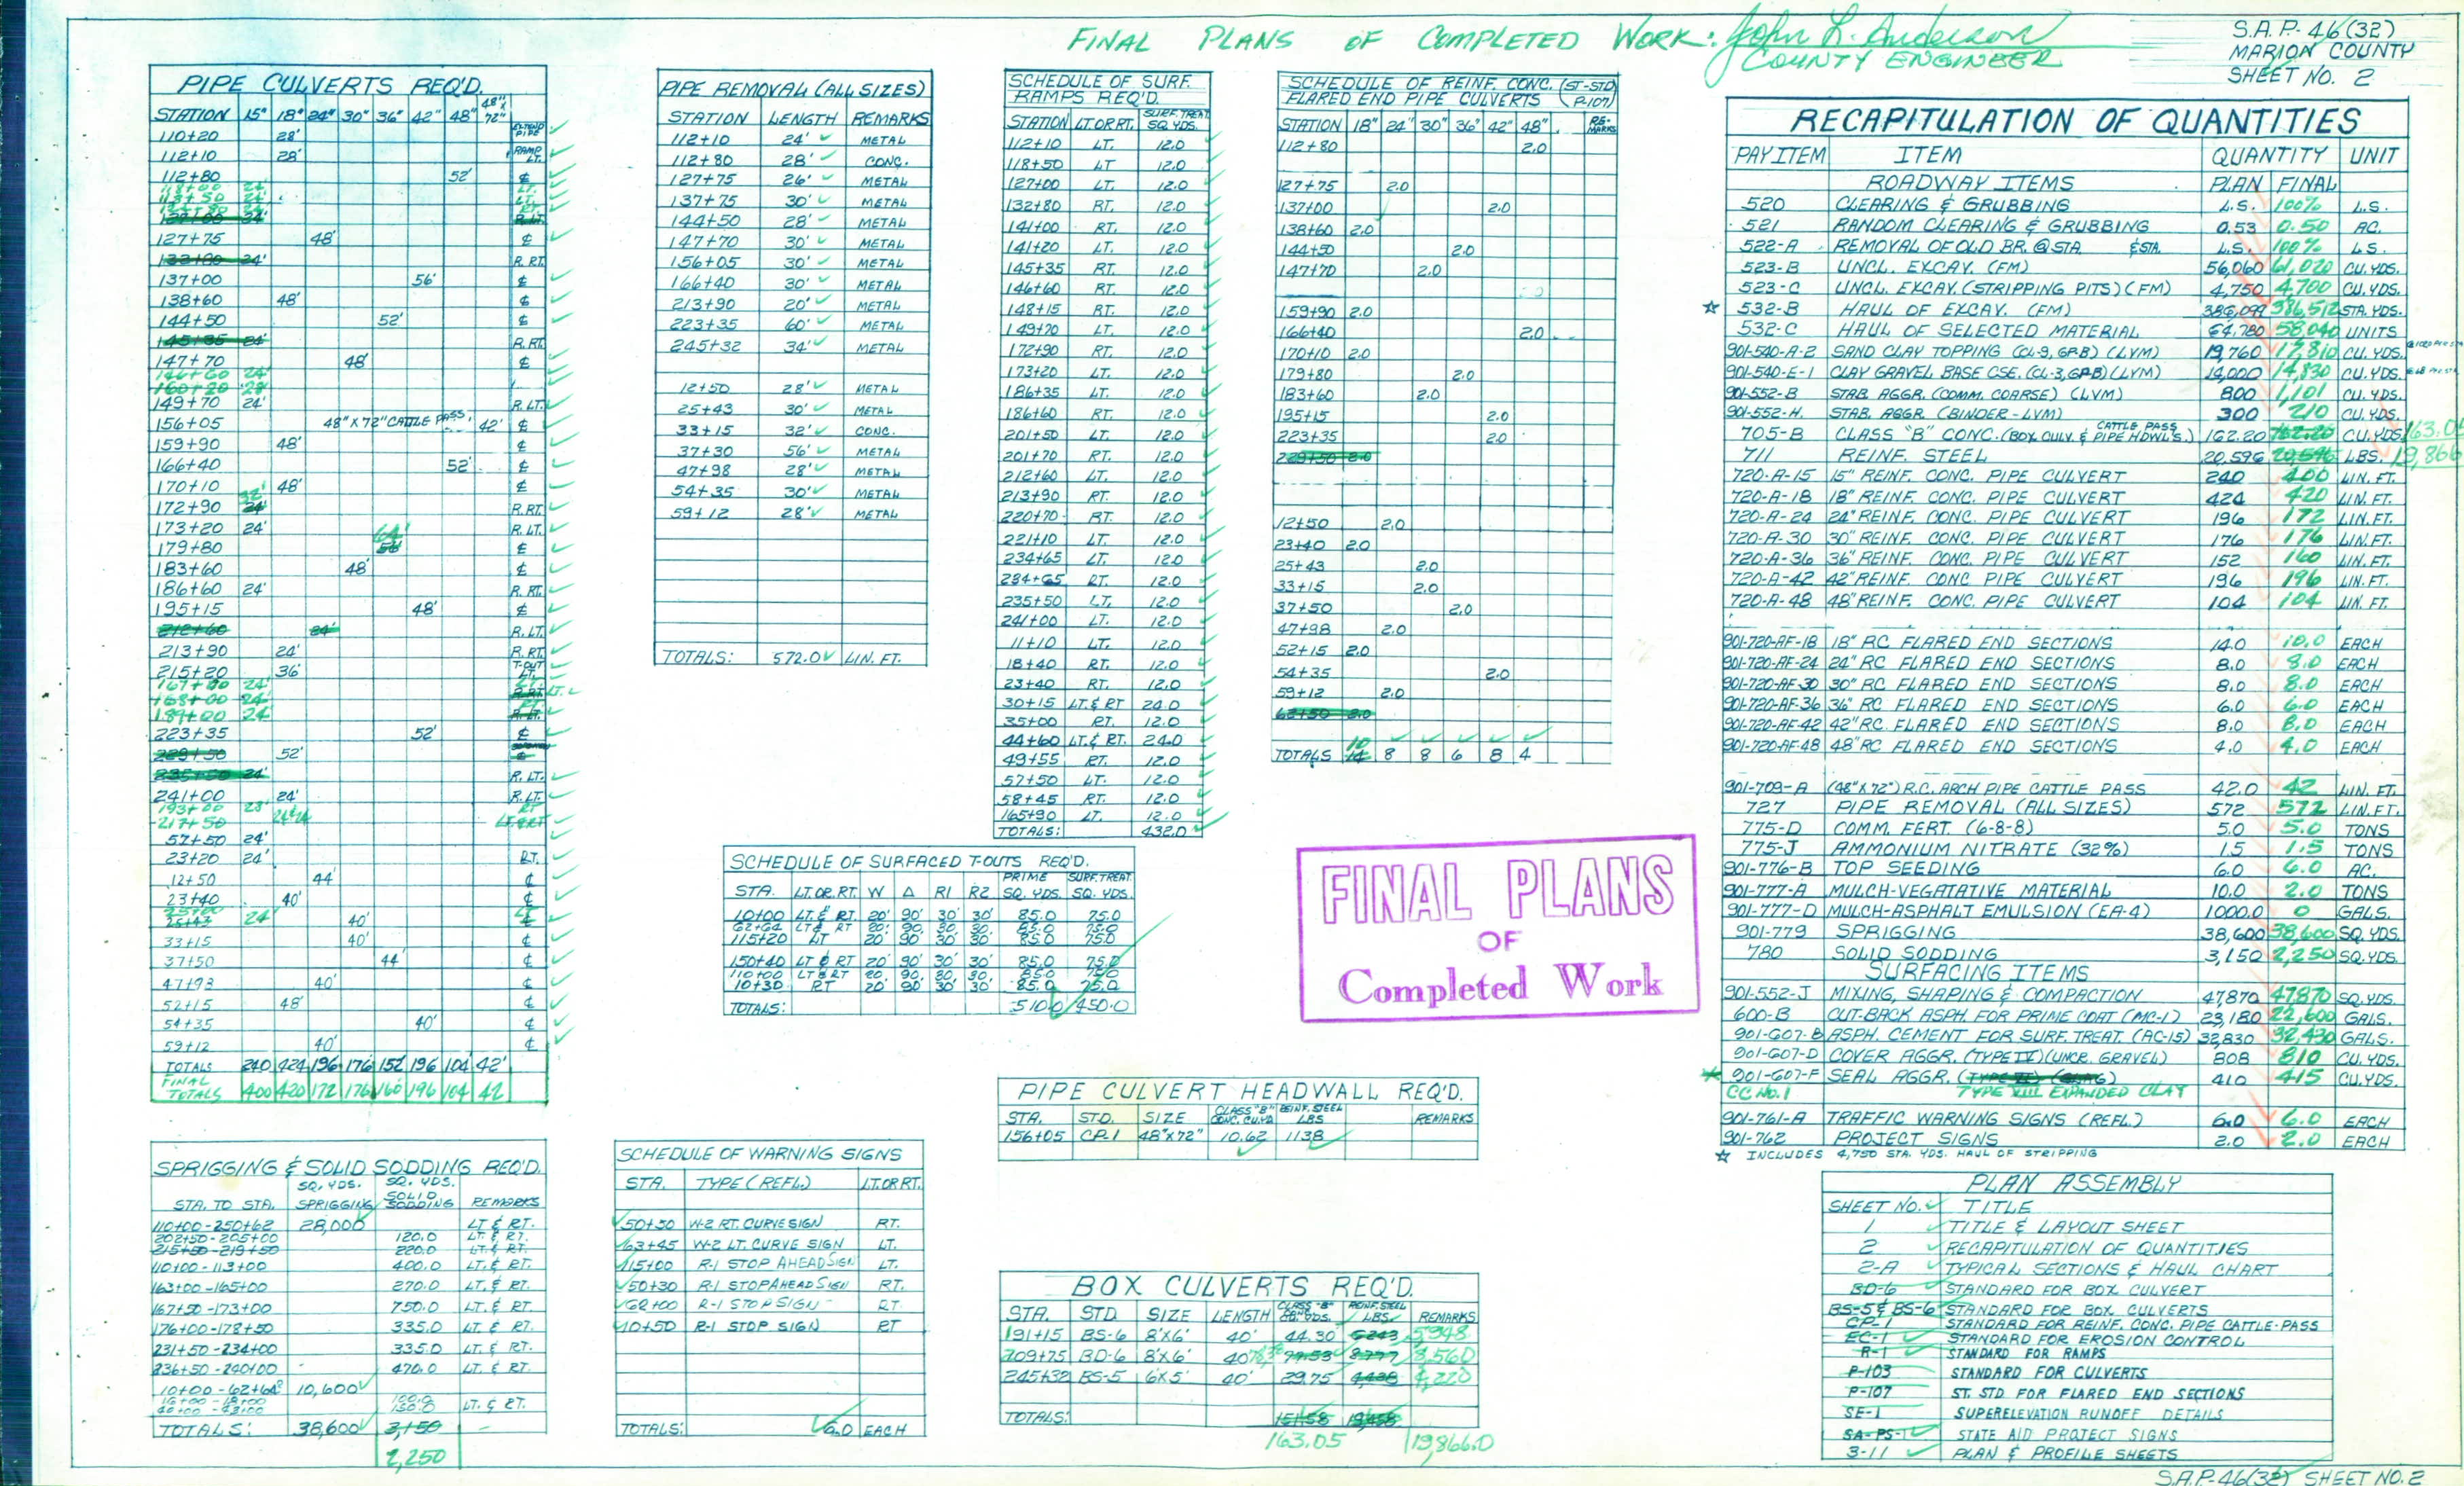 FINAL PLANS OF COMPLETED WORK: John L. Anderson
COUNTY ENGINEER
S.A.P.-46(32)
MARION COUNTY
SHEET NO. 2
PIPE CULVERTS REQ'D.
STATION 15" 18" 24" 30" 36" 42" 48" 48"X72"
110+20 28' EXTEND PIPE
112+10 28' RAMP LT.
112+80 52' ₵
118+00 24' LT.
118+50 24' LT.
24' RT.
127+00 24' R.LT.
127+75 48' ₵
24' R.RT.
137+00 56' ₵
138+60 48' ₵
144+50 52' ₵
145+35 24' R.RT.
147+70 48' ₵
146+60 24'
160+20 28'
149+70 24' R.LT.
156+05 48"X72" CATTLE PASS. 42' ₵
159+90 48' ₵
166+40 52' ₵
170+10 48' ₵
172+90 32' 24' R.RT.
173+20 24' R.LT.
179+80 64' 56' ₵
183+60 48' ₵
186+60 24' R.RT.
195+15 48' ₵
212+60 24' R.LT.
213+90 24' R.RT.
215+20 36' T-OUT LT.
167+00 24' LT.
168+00 24' LT.
189+00 24'
223+35 52' ₵
229+50 52' ₵
235+50 24' R.LT.
241+00 24' R.LT.
193+00 28' RT
217+50 LT.&RT
57+50 24'
23+20 24' RT.
12+50 44' ₵
23+40 40' ₵
24'
25+43 40' ₵
33+15 40' ₵
37+50 44' ₵
47+98 40' ₵
52+15 48' ₵
54+35 40' ₵
59+12 40' ₵
TOTALS 240 424 196 176 152 196 104 42'
FINAL TOTALS 400 420 172 176 160 196 104 42
PIPE REMOVAL (ALL SIZES)
STATION LENGTH REMARKS
112+10 24' METAL
112+80 28' CONC.
127+75 26' METAL
137+75 30' METAL
144+50 28' METAL
147+70 30' METAL
156+05 30' METAL
166+40 30' METAL
213+90 20' METAL
223+35 60' METAL
245+32 34' METAL
12+50 28' METAL
25+43 30' METAL
33+15 32' CONC.
37+30 56' METAL
47+98 28' METAL
54+35 30' METAL
59+12 28' METAL
TOTALS: 572.0 LIN. FT.
SCHEDULE OF SURF.
RAMPS REQ'D.
STATION LT OR RT. SURF. TREAT. SQ. YDS.
112+10 LT. 12.0
118+50 LT 12.0
127+00 LT. 12.0
132+80 RT. 12.0
141+00 RT. 12.0
141+20 LT. 12.0
145+35 RT. 12.0
146+60 RT. 12.0
148+15 RT. 12.0
149+70 LT. 12.0
172+90 RT. 12.0
173+20 LT. 12.0
186+35 LT. 12.0
186+60 RT. 12.0
201+50 LT. 12.0
201+70 RT. 12.0
212+60 LT. 12.0
213+90 RT. 12.0
220+70 RT. 12.0
221+10 LT. 12.0
234+65 LT. 12.0
234+65 RT. 12.0
235+50 LT. 12.0
241+00 LT. 12.0
11+10 LT. 12.0
18+40 RT. 12.0
23+40 RT. 12.0
30+15 LT.& RT 24.0
35+00 RT. 12.0
44+60 LT.& RT. 24.0
49+55 RT. 12.0
57+50 LT. 12.0
58+45 RT. 12.0
165+90 LT. 12.0
TOTALS: 432.0
SCHEDULE OF REINF. CONC. (ST-STD
FLARED END PIPE CULVERTS P-107)
STATION 18" 24" 30" 36" 42" 48" REMARKS
112+80 2.0
127+75 2.0
137+00 2.0
138+60 2.0
144+50 2.0
147+70 2.0
159+90 2.0
166+40 2.0
170+10 2.0
179+80 2.0
183+60 2.0
195+15 2.0
223+35 2.0
229+50 2.0
12+50 2.0
23+40 2.0
25+43 2.0
33+15 2.0
37+50 2.0
47+98 2.0
52+15 2.0
54+35 2.0
59+12 2.0
63+50 2.0
TOTALS 10 14 8 8 6 8 4
SCHEDULE OF SURFACED T-OUTS REQ'D.
STA. LT. OR. RT. W Δ R1 R2 PRIME SQ. YDS. SURF. TREAT. SQ. YDS.
10+00 LT. & RT. 20' 90° 30' 30' 85.0 75.0
62+64 LT & RT 20' 90° 30' 30' 85.0 75.0
115+20 LT 20' 90° 30' 30' 85.0 75.0
150+40 LT & RT 20' 90° 30' 30' 85.0 75.0
110+00 LT & RT 20' 90° 30' 30' 85.0 75.0
10+30 RT 20' 90° 30' 30' 85.0 75.0
TOTALS: 510.0 450.0
FINAL PLANS
OF
Completed Work
PIPE CULVERT HEADWALL REQ'D.
STA. STD. SIZE CLASS "B" CONC. CU.YD. REINF. STEEL LBS REMARKS
156+05 CP-1 48"X72" 10.62 1138
SPRIGGING & SOLID SODDING REQ'D.
STA. TO STA. SQ. YDS. SPRIGGING SQ. YDS. SOLID SODDING REMARKS
110+00-250+62 28,000 LT & RT.
202+50-205+00 120.0 LT & RT.
215+50-219+50 220.0 LT & RT.
110+00-113+00 400.0 LT. & RT.
163+00-165+00 270.0 LT. & RT.
167+50-173+00 750.0 LT. & RT.
176+00-178+50 335.0 LT. & RT.
231+50-234+00 335.0 LT. & RT.
236+50-240+00 470.0 LT. & RT.
10+00-62+64 10,600
100.0
150.0 LT. & RT.
TOTALS: 38,600 3,150
2,250
SCHEDULE OF WARNING SIGNS
STA. TYPE (REFL.) LT. OR RT.
50+50 W-2 RT. CURVE SIGN RT.
63+45 W-2 LT. CURVE SIGN LT.
115+00 R-1 STOP AHEAD SIGN LT.
50+30 R-1 STOP AHEAD SIGN RT.
62+00 R-1 STOP SIGN RT
10+50 R-1 STOP SIGN RT
TOTALS: 6.0 EACH
BOX CULVERTS REQ'D.
STA. STD SIZE LENGTH CLASS "B" CONC. YDS. REINF. STEEL LBS. REMARKS
191+15 BS-6 8'X6' 40' 44.30 5243 5948
209+75 BD-6 8'X6' 40' 77.53 8777 8,560
245+32 BS-5 6'X5' 40' 29.75 4,438 4,220
TOTALS: 151.58 19,458
163.05 19,866.0
RECAPITULATION OF QUANTITIES
PAY ITEM ITEM QUANTITY UNIT
ROADWAY ITEMS PLAN FINAL
520 CLEARING & GRUBBING L.S. 100% L.S.
521 RANDOM CLEARING & GRUBBING 0.53 0.50 AC.
522-A REMOVAL OF OLD BR. @ STA. & STA. L.S. 100% L.S.
523-B UNCL. EXCAV. (FM) 56,060 61,020 CU. YDS.
523-C UNCL. EXCAV. (STRIPPING PITS) (FM) 4,750 4,700 CU. YDS.
☆ 532-B HAUL OF EXCAV. (FM) 386,099 386,512 STA. YDS.
532-C HAUL OF SELECTED MATERIAL 64,780 58,040 UNITS
901-540-A-2 SAND CLAY TOPPING (CL-9, GP.B) (LVM) 19,760 17,810 CU. YDS.
901-540-E-1 CLAY GRAVEL BASE CSE. (CL-3, GP.B) (LVM) 14,000 14,830 CU. YDS.
901-552-B STAB. AGGR. (COMM. COARSE) (LVM) 800 1,101 CU. YDS.
901-552-H. STAB. AGGR. (BINDER-LVM) 300 210 CU. YDS.
705-B CLASS "B" CONC. (BOX CULV. & CATTLE PASS PIPE HDWL'S.) 162.20 162.20 CU. YDS. 163.05
711 REINF. STEEL 20,596 20,596 LBS. 19,866
720-A-15 15" REINF. CONC. PIPE CULVERT 240 400 LIN. FT.
720-A-18 18" REINF. CONC. PIPE CULVERT 424 420 LIN. FT.
720-A-24 24" REINF. CONC. PIPE CULVERT 196 172 LIN. FT.
720-A-30 30" REINF. CONC. PIPE CULVERT 176 176 LIN. FT.
720-A-36 36" REINF. CONC. PIPE CULVERT 152 160 LIN. FT.
720-A-42 42" REINF. CONC. PIPE CULVERT 196 196 LIN. FT.
720-A-48 48" REINF. CONC. PIPE CULVERT 104 104 LIN. FT.
901-720-AF-18 18" RC FLARED END SECTIONS 14.0 10.0 EACH
901-720-AF-24 24" RC FLARED END SECTIONS 8.0 8.0 EACH
901-720-AF-30 30" RC FLARED END SECTIONS 8.0 8.0 EACH
901-720-AF-36 36" RC FLARED END SECTIONS 6.0 6.0 EACH
901-720-AF-42 42" RC. FLARED END SECTIONS 8.0 8.0 EACH
901-720-AF-48 48" RC FLARED END SECTIONS 4.0 4.0 EACH
901-709-A (48"X72") R.C. ARCH PIPE CATTLE PASS 42.0 42 LIN. FT.
727 PIPE REMOVAL (ALL SIZES) 572 572 LIN. FT.
775-D COMM. FERT. (6-8-8) 5.0 5.0 TONS
775-J AMMONIUM NITRATE (32%) 1.5 1.5 TONS
901-776-B TOP SEEDING 6.0 6.0 AC.
901-777-A MULCH-VEGATATIVE MATERIAL 10.0 2.0 TONS
901-777-D MULCH-ASPHALT EMULSION (EA-4) 1000.0 0 GALS.
901-779 SPRIGGING 38,600 38,600 SQ. YDS.
780 SOLID SODDING 3,150 2,250 SQ. YDS.
SURFACING ITEMS
901-552-J MIXING, SHAPING & COMPACTION 47,870 47870 SQ. YDS.
600-B CUT-BACK ASPH. FOR PRIME COAT (MC-1) 23,180 22,600 GALS.
901-607-B ASPH. CEMENT FOR SURF. TREAT. (AC-15) 32,830 32,430 GALS.
901-607-D COVER AGGR. (TYPE IV) (UNCR. GRAVEL) 808 810 CU. YDS.
901-607-F SEAL AGGR. (SLAG) 410 415 CU. YDS.
CC NO. 1 TYPE VIII EXPANDED CLAY
901-761-A TRAFFIC WARNING SIGNS (REFL.) 6.0 6.0 EACH
901-762 PROJECT SIGNS 2.0 2.0 EACH
☆ INCLUDES 4,750 STA. YDS. HAUL OF STRIPPING
PLAN ASSEMBLY
SHEET NO. TITLE
1 TITLE & LAYOUT SHEET
2 RECAPITULATION OF QUANTITIES
2-A TYPICAL SECTIONS & HAUL CHART
BD-6 STANDARD FOR BOX CULVERT
BS-5 & BS-6 STANDARD FOR BOX CULVERTS
CP-1 STANDARD FOR REINF. CONC. PIPE CATTLE-PASS
EC-1 STANDARD FOR EROSION CONTROL
R-1 STANDARD FOR RAMPS
P-103 STANDARD FOR CULVERTS
P-107 ST. STD. FOR FLARED END SECTIONS
SE-1 SUPERELEVATION RUNOFF DETAILS
SA-PS-1 STATE AID PROJECT SIGNS
3-11 PLAN & PROFILE SHEETS
S.A.P.-46(32) SHEET NO. 2